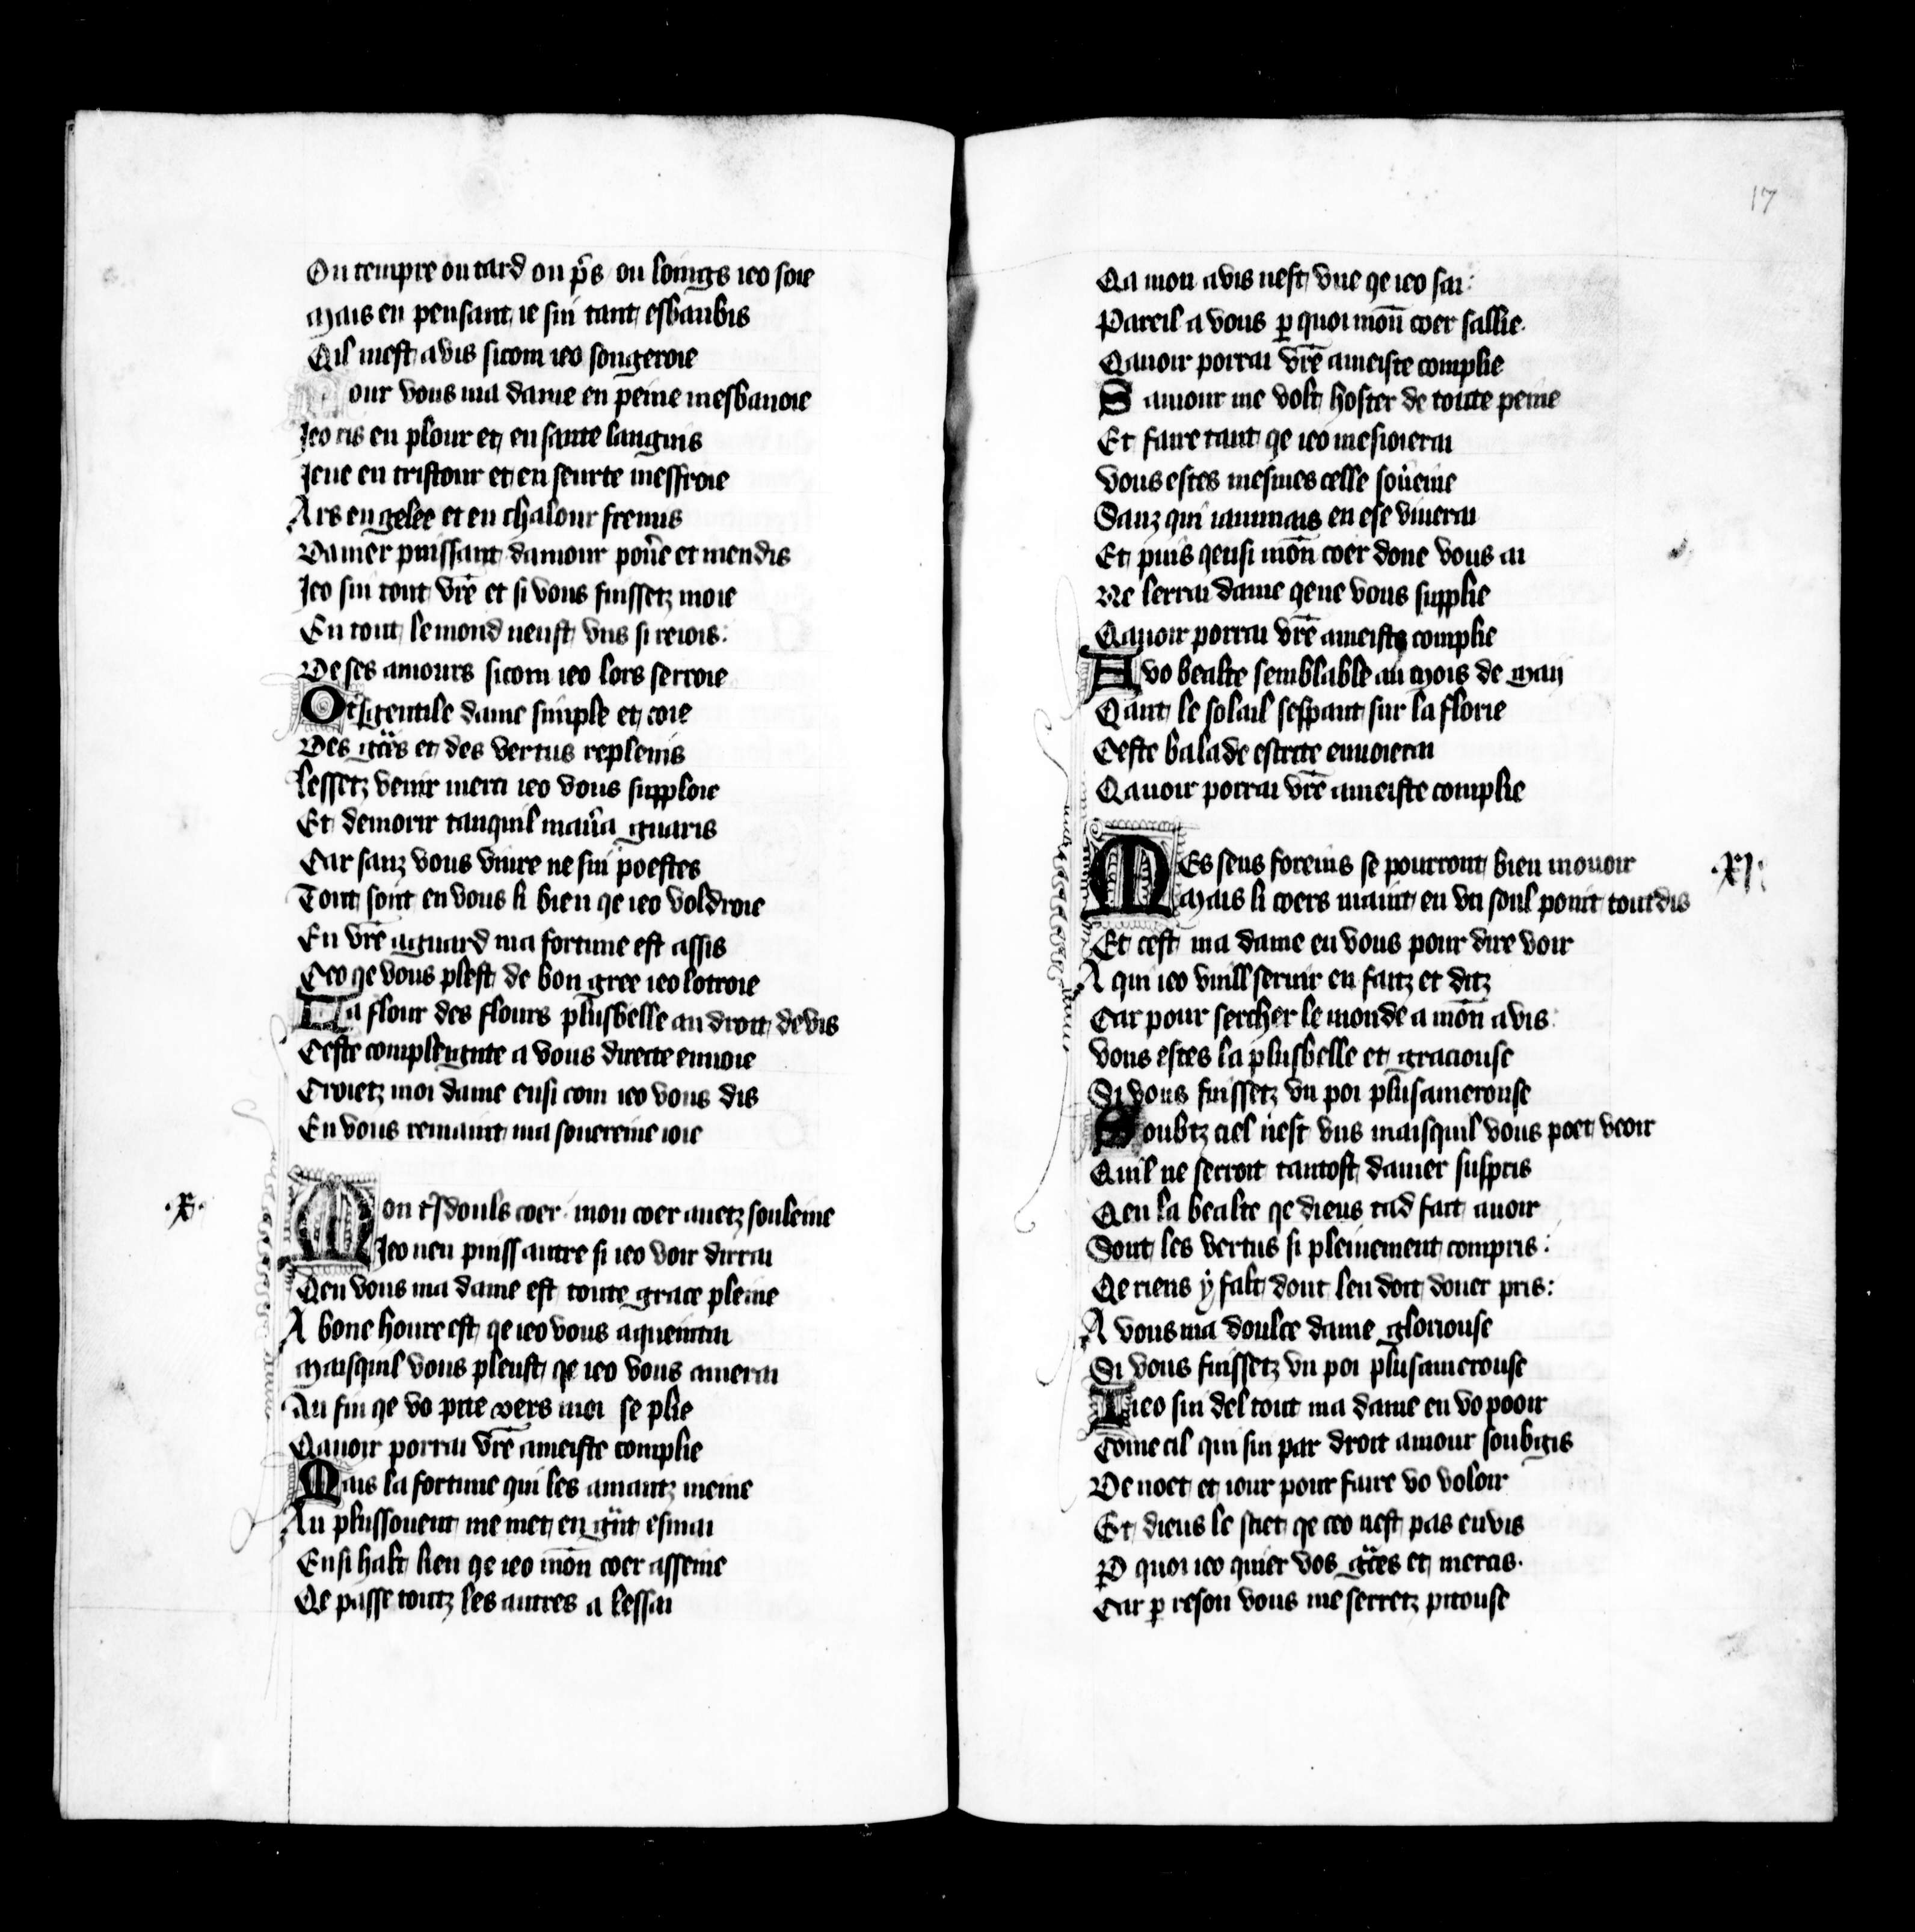 Ou tempre ou tard ou p̄s ou loings ieo soie
Mais en pensant ie sui tant esbaubis
Qil mest avis sicom ieo songeroie
Pour vous ma dame en peine mesbanoie
Jeo ris en plour et en sante languis
Jeue en tristour et en seurte meffroie
Ars en gelee et en chalour fremis
Damer puissant damour pou͛e et mendis
Jeo sui tout vr̄e et si vous fuissetz moie
En tout le mond neust vns si reiois:
De ses amours sicom ieo lors serroie
O tsgentile dame simple et coie
Des gͣces et des vertus replenis
Lessetz venir merci ieo vous supploie
Et demorir tanquil mau͛a guaris
Car sanz vous viure ne sui poestes
Tout sont en vous li bien qe ieo voldroie
En vr̄e aguard ma fortune est assis
Ceo qe vous plest de bon gree ieo lotroie
La flour des flours plusbelle au droit devis
Ceste compleignte a vous directe envoie
Croietz moi dame ensi com ieo vous dis
En vous remaint ma souereine ioie
·X·
Mon tsdouls coer mon coer auetz souleine
Jeo nen puiss autre si ieo voir dirrai
Qen vous ma dame est toute grace pleine
A bone houre est qe ieo vous aqueintai
Maisquil vous pleust qe ieo vous amerai
Au fin qe vo pite vers moi se plie
Qauoir porrai vr̄e ameiste complie
Mais la fortune qui les amantz meine
Au plussouent me met en gͣnt esmai
En si halt lieu qe ieo mon̄ coer asseine
Qe passe toutz les autres a lessai
17
Qa mon avis nest vne qe ieo sai:
Pareil a vous ꝑ quoi mon̄ coer sallie.
Qauoir porrai vr̄e ameiste complie
S amour me volt hoster de toute peine
Et faire tant qe ieo mesioierai
Vous estes mesmes celle sou͛eine
Sanz qui iammais en ese viuerai
Et puis qensi mon̄ coer done vous ai
Ne lerrai dame qe ne vous supplie
Qauoir porrai vr̄e ameiste complie
A vo bealte semblable au Mois de Maij
Qant le solail sespant sur la florie
Ceste balade escrite envoierai
Qauoir porrai vr̄e ameiste complie
·XI·
Mes sens foreins se pourront bien mouoir
Mais li coers maint en vn soul point toutdis
Et cest ma dame en vous pour dire voir
A qui ieo vuill seruir en faitz et ditz
Car pour sercher le monde a mon̄ avis:
Vous estes la plusbelle et graciouse
Si vous fuissetz vn poi plusamerouse
Soubtz ciel nest vns maisquil vous poet veoir
Quil ne serroit tantost damer suspris
Qen la bealte qe dieus tad fait auoir
Sont les vertus si pleinement compris:
Qe riens ẏ falt dont len doit doner pris:
A vous ma doulce dame gloriouse
Si vous fuissetz vn poi plusamerouse
Jeo sui del tout ma dame en vo pooir
Come cil qui sui par droit amour soubgis
De noet et iour pour faire vo voloir
Et dieus le sciet qe ceo nest pas envis
Ꝑ quoi ieo quier vos gͣces et mercis.
Car ꝑ reson vous me serretz pitouse